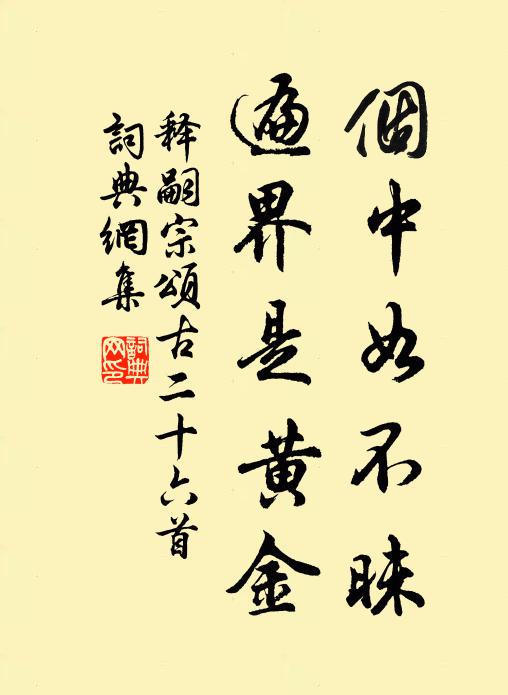 個中如不昧
遍界是黄金
释嗣宗頌古二十六首
詞典網集
詞典网印